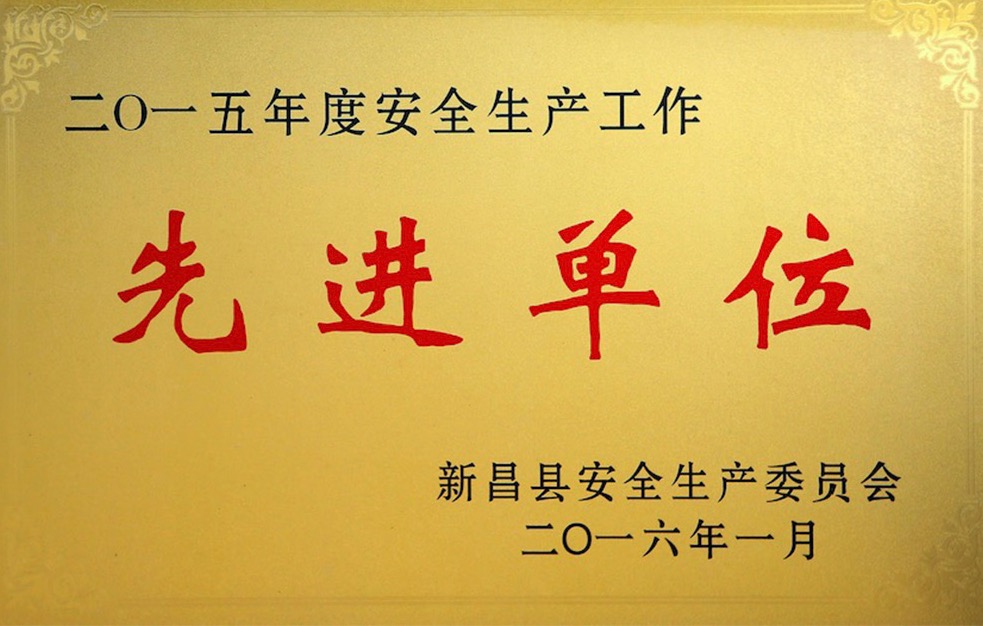 二〇一五年度安全生产工作
先进单位
新昌县安全生产委员会
二〇一六年一月